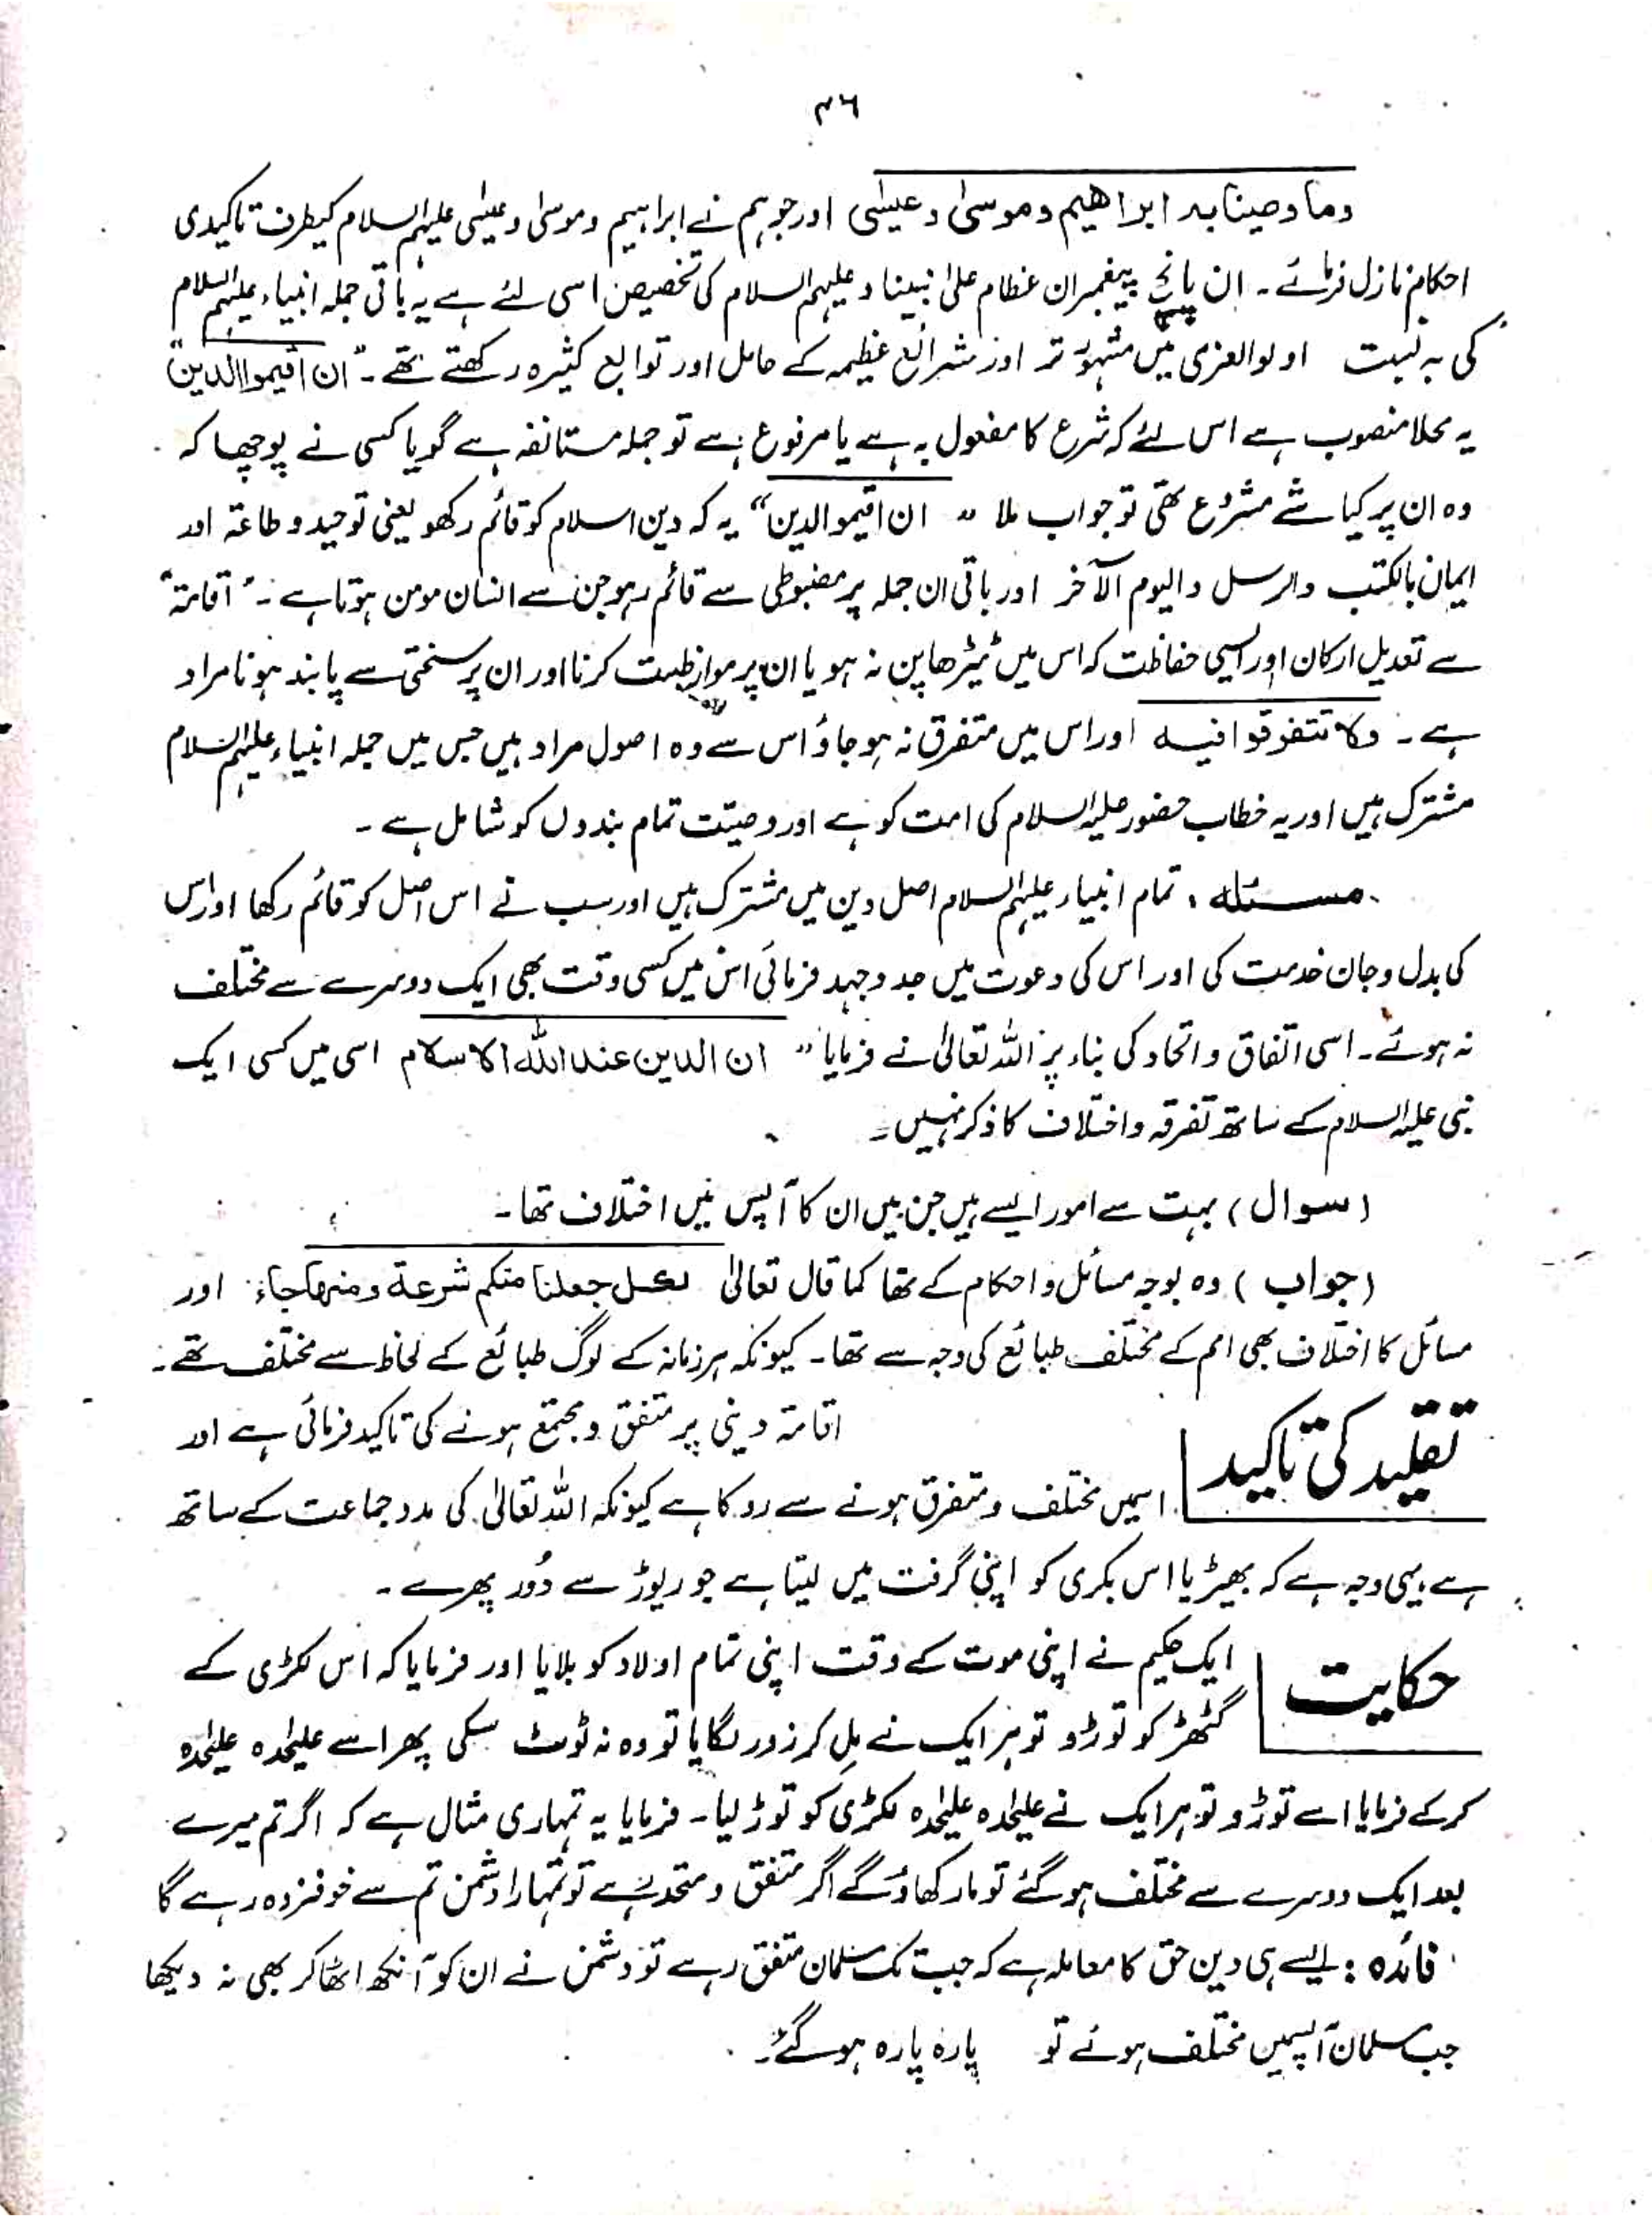 ۳۶
وما وصینا بہ ابراھیم وموسیٰ وعیسٰی اور جو ہم نے ابراہیم وموسیٰ وعیسٰی علیہم السلام کیطرف تاکیدی
احکام نازل فرمائے ۔ ان پانچ پیغمبران عظام علیٰ نبینا وعلیہم السلام کی تخصیص اسی لئے ہے یہ باقی جملہ انبیاء علیہم السلام
کی بہ نسبت اولوالعزمی میں مشہور تر اور شرائع عظیمہ کے حامل اور توابع کثیرہ رکھتے تھے ۔ "ان اقیموا الدین
یہ محلا منصوب ہے اس لئے کہ شرع کا مفعول بہ ہے یا مرفوع ہے تو جملہ مستانفہ ہے گویا کسی نے پوچھا کہ
وہ ان پر کیا شے مشروع تھی تو جواب ملا " ان اقیمو الدین" یہ کہ دین اسلام کو قائم رکھو یعنی توحید و طاعۃ اور
ایمان بالکتب والرسل والیوم الآخر اور باقی ان جملہ پر مضبوطی سے قائم رہو جن سے انسان مومن ہوتا ہے ۔ "اقامۃ"
سے تعدیل ارکان اور ایسی حفاظت کہ اس میں ٹیڑھا پن نہ ہو یا ان پر مواظبت کرنا اور ان پر سختی سے پابند ہونا مراد
ہے ۔ ولا تتفرقوا فیہ اور اس میں متفرق نہ ہو جاؤ اس سے وہ اصول مراد ہیں جس میں جملہ انبیاء علیہم السلام
مشترک ہیں اور یہ خطاب حضور علیہ السلام کی امت کو ہے اور وصیّت تمام بندوں کو شامل ہے ۔
مسئلہ ، تمام انبیاء علیہم السلام اصل دین میں مشترک ہیں اور سب نے اس اصل کو قائم رکھا اور اس
کی بدل وجان خدمت کی اور اس کی دعوت میں جد وجہد فرمائی اس میں کسی وقت بھی ایک دوسرے سے مختلف
نہ ہوئے ۔ اسی اتفاق واتحاد کی بناء پر اللہ تعالیٰ نے فرمایا " ان الدین عند اللہ الاسلام اسی میں کسی ایک
نبی علیہ السلام کے ساتھ تفرقہ واختلاف کا ذکر نہیں ۔
(سوال) بہت سے امور ایسے ہیں جن میں ان کا آپس میں اختلاف تھا ۔
(جواب) وہ بوجہ مسائل واحکام کے تھا کما قال تعالیٰ لکل جعلنا منکم شرعۃ ومنھاجاء اور
مسائل کا اختلاف بھی امم کے مختلف طبائع کی وجہ سے تھا ۔ کیونکہ ہر زمانہ کے لوگ طبائع کے لحاظ سے مختلف تھے ۔
تقلید کی تاکید
اقامۃ دینی پر متفق ومجتمع ہونے کی تاکید فرمائی ہے اور
اسمیں مختلف ومتفرق ہونے سے روکا ہے کیونکہ اللہ تعالیٰ کی مدد جماعت کے ساتھ
ہے یہی وجہ ہے کہ بھیڑیا اس بکری کو اپنی گرفت میں لیتا ہے جو ریوڑ سے دُور پھرے ۔
حکایت
ایک حکیم نے اپنی موت کے وقت اپنی تمام اولاد کو بلایا اور فرمایا کہ اس لکڑی کے
گٹھڑ کو توڑو تو ہر ایک نے مِل کر زور لگایا تو وہ نہ ٹوٹ سکی پھر اسے علیحٰدہ علیحٰدہ
کرکے فرمایا اسے توڑو تو ہر ایک نے علیحٰدہ علیحٰدہ لکڑی کو توڑ لیا ۔ فرمایا یہ تمہاری مثال ہے کہ اگر تم میرے
بعد ایک دوسرے سے مختلف ہو گئے تو مار کھاؤ گے اگر متفق ومتحد رہے تو تمہارا دشمن تم سے خوفزدہ رہے گا
فائدہ : ایسے ہی دین حق کا معاملہ ہے کہ جب تک مسلمان متفق رہے تو دشمن نے ان کو آنکھ اٹھا کر بھی نہ دیکھا
جب مسلمان آپسمیں مختلف ہوئے تو پارہ پارہ ہو گئے ۔